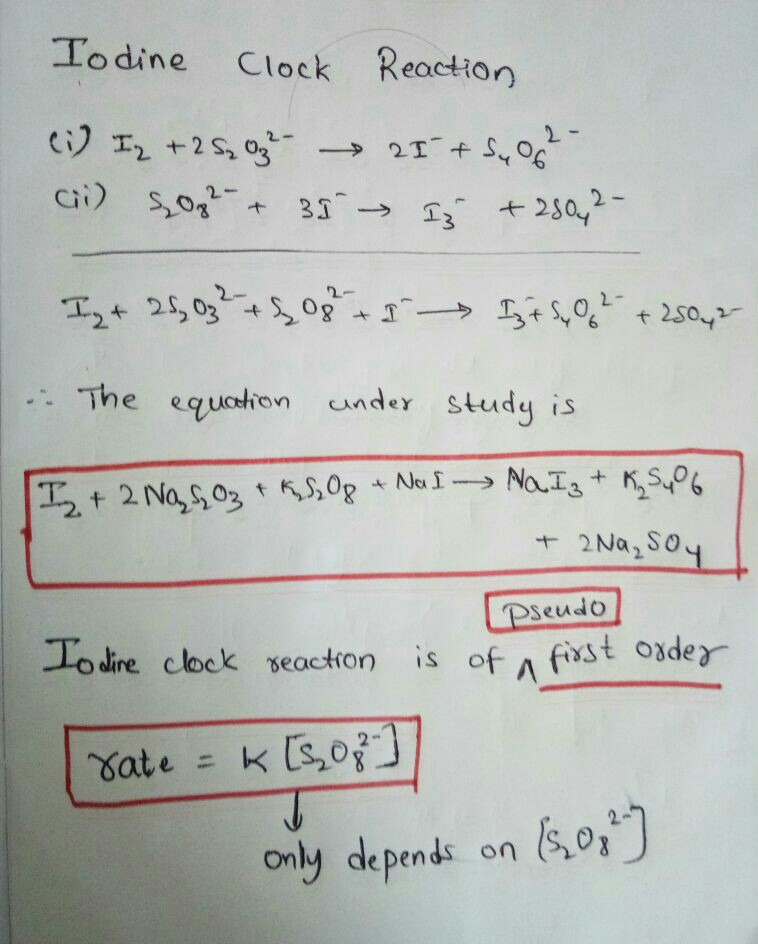 Iodine Clock Reaction
(i) I₂ + 2S₂O₃²⁻ → 2I⁻ + S₄O₆²⁻
(ii) S₂O₈²⁻ + 3I⁻ → I₃⁻ + 2SO₄²⁻
I₂ + 2S₂O₃²⁻ + S₂O₈²⁻ + I⁻ → I₃⁻ + S₄O₆²⁻ + 2SO₄²⁻
∴ The equation under study is
I₂ + 2Na₂S₂O₃ + K₂S₂O₈ + NaI → NaI₃ + K₂S₄O₆
+ 2Na₂SO₄
pseudo
Iodine clock reaction is of ∧ first order
rate = K [S₂O₈²⁻]
↓
only depends on [S₂O₈²⁻]